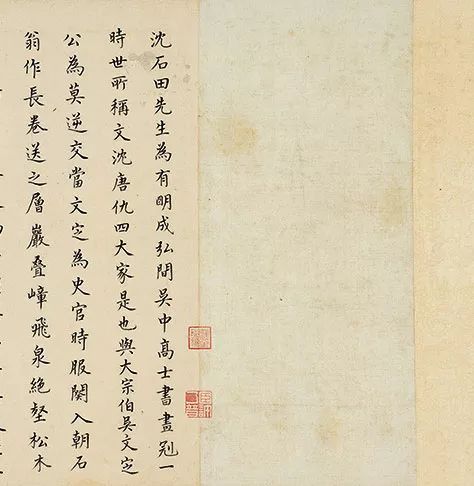 沈石田先生為有明成弘間吳中高士書畫冠一
時世所稱文沈唐仇四大家是也與大宗伯吳文定
公為莫逆交當文定為史官時服闋入朝石
翁作長卷送之層巖叠嶂飛泉絕壑松木